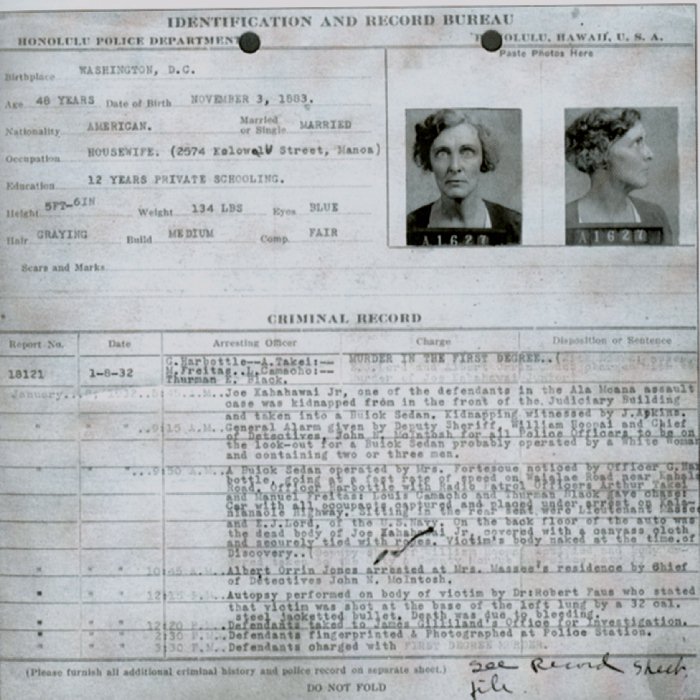 IDENTIFICATION AND RECORD BUREAU
HONOLULU POLICE DEPARTMENT HONOLULU, HAWAII, U. S. A.
Paste Photos Here
Birthplace WASHINGTON, D.C.
Age 48 YEARS Date of Birth NOVEMBER 3, 1883.
Nationality AMERICAN. Married or Single MARRIED
Occupation HOUSEWIFE. (2574 Street, Manoa)
Education 12 YEARS PRIVATE SCHOOLING.
Height 5FT-6IN Weight 134 LBS Eyes BLUE
Hair GRAYING Build MEDIUM Comp. FAIR
A1627 A1627
Scars and Marks
CRIMINAL RECORD
Report No. Date Arresting Officer Charge Disposition or Sentence
18121 1-8-32 G.Harbottle--A.Takei:-- MURDER IN THE FIRST DEGREE..
M.Freitag..L.Camacho:--
Thurman E. Black.
January Joe Kahahawai Jr, one of the defendants in the Ala Moana assault
case was kidnapped from in the front of the Judiciary Building
and taken into a Buick Sedan. Kidnapping witnessed by J.Apkins.
" " ..9:15 A.M..General Alarm given by Deputy Sheriff, William Hoopai and Chief
of Detectives, John N. McIntosh for all Police Officers to be on
the look-out for a Buick Sedan probably operated by a White Woman
and containing two or three men.
" " ..9:30 A.M..A Buick Sedan operated by Mrs. Fortescue noticed by Officer G.Har
bottle, going at a fast rate of speed on Waialae Road near
Road. Officer Harbottle with Radio Patrol Officers Arthur
and Manuel Freitas: Louis Camacho and Thurman Black gave chase:
Car with all occupants captured and placed under arrest on
Highway. Riding in the rear seat was Lieutenant
and E.J.Lord, of the U.S.Navy. On the back floor of the auto was
the dead body of Joe Kahahawai Jr, covered with a canvass cloth
and securely tied with ropes. Victim's body naked at the time of
Discovery..
" " 10:45 A.M..Albert Orrin Jones arrested at Mrs. Massee's residence by Chief
of Detectives John N. McIntosh.
" " 12:15 P.M..Autopsy performed on body of victim by Dr:Robert Faus who stated
that victim was shot at the base of the left lung by a 32 cal.
steel jacketed bullet. Death was due to bleeding.
" " 12:20 P.M..Defendants taken to James Gilliland's Office for Investigation.
" " 2:30 P.M..Defendants fingerprinted & Photographed at Police Station.
" " 3:30 P.M..Defendants charged with FIRST DEGREE MURDER.
(Please furnish all additional criminal history and police record on separate sheet.)
See Record Sheet
file.
DO NOT FOLD